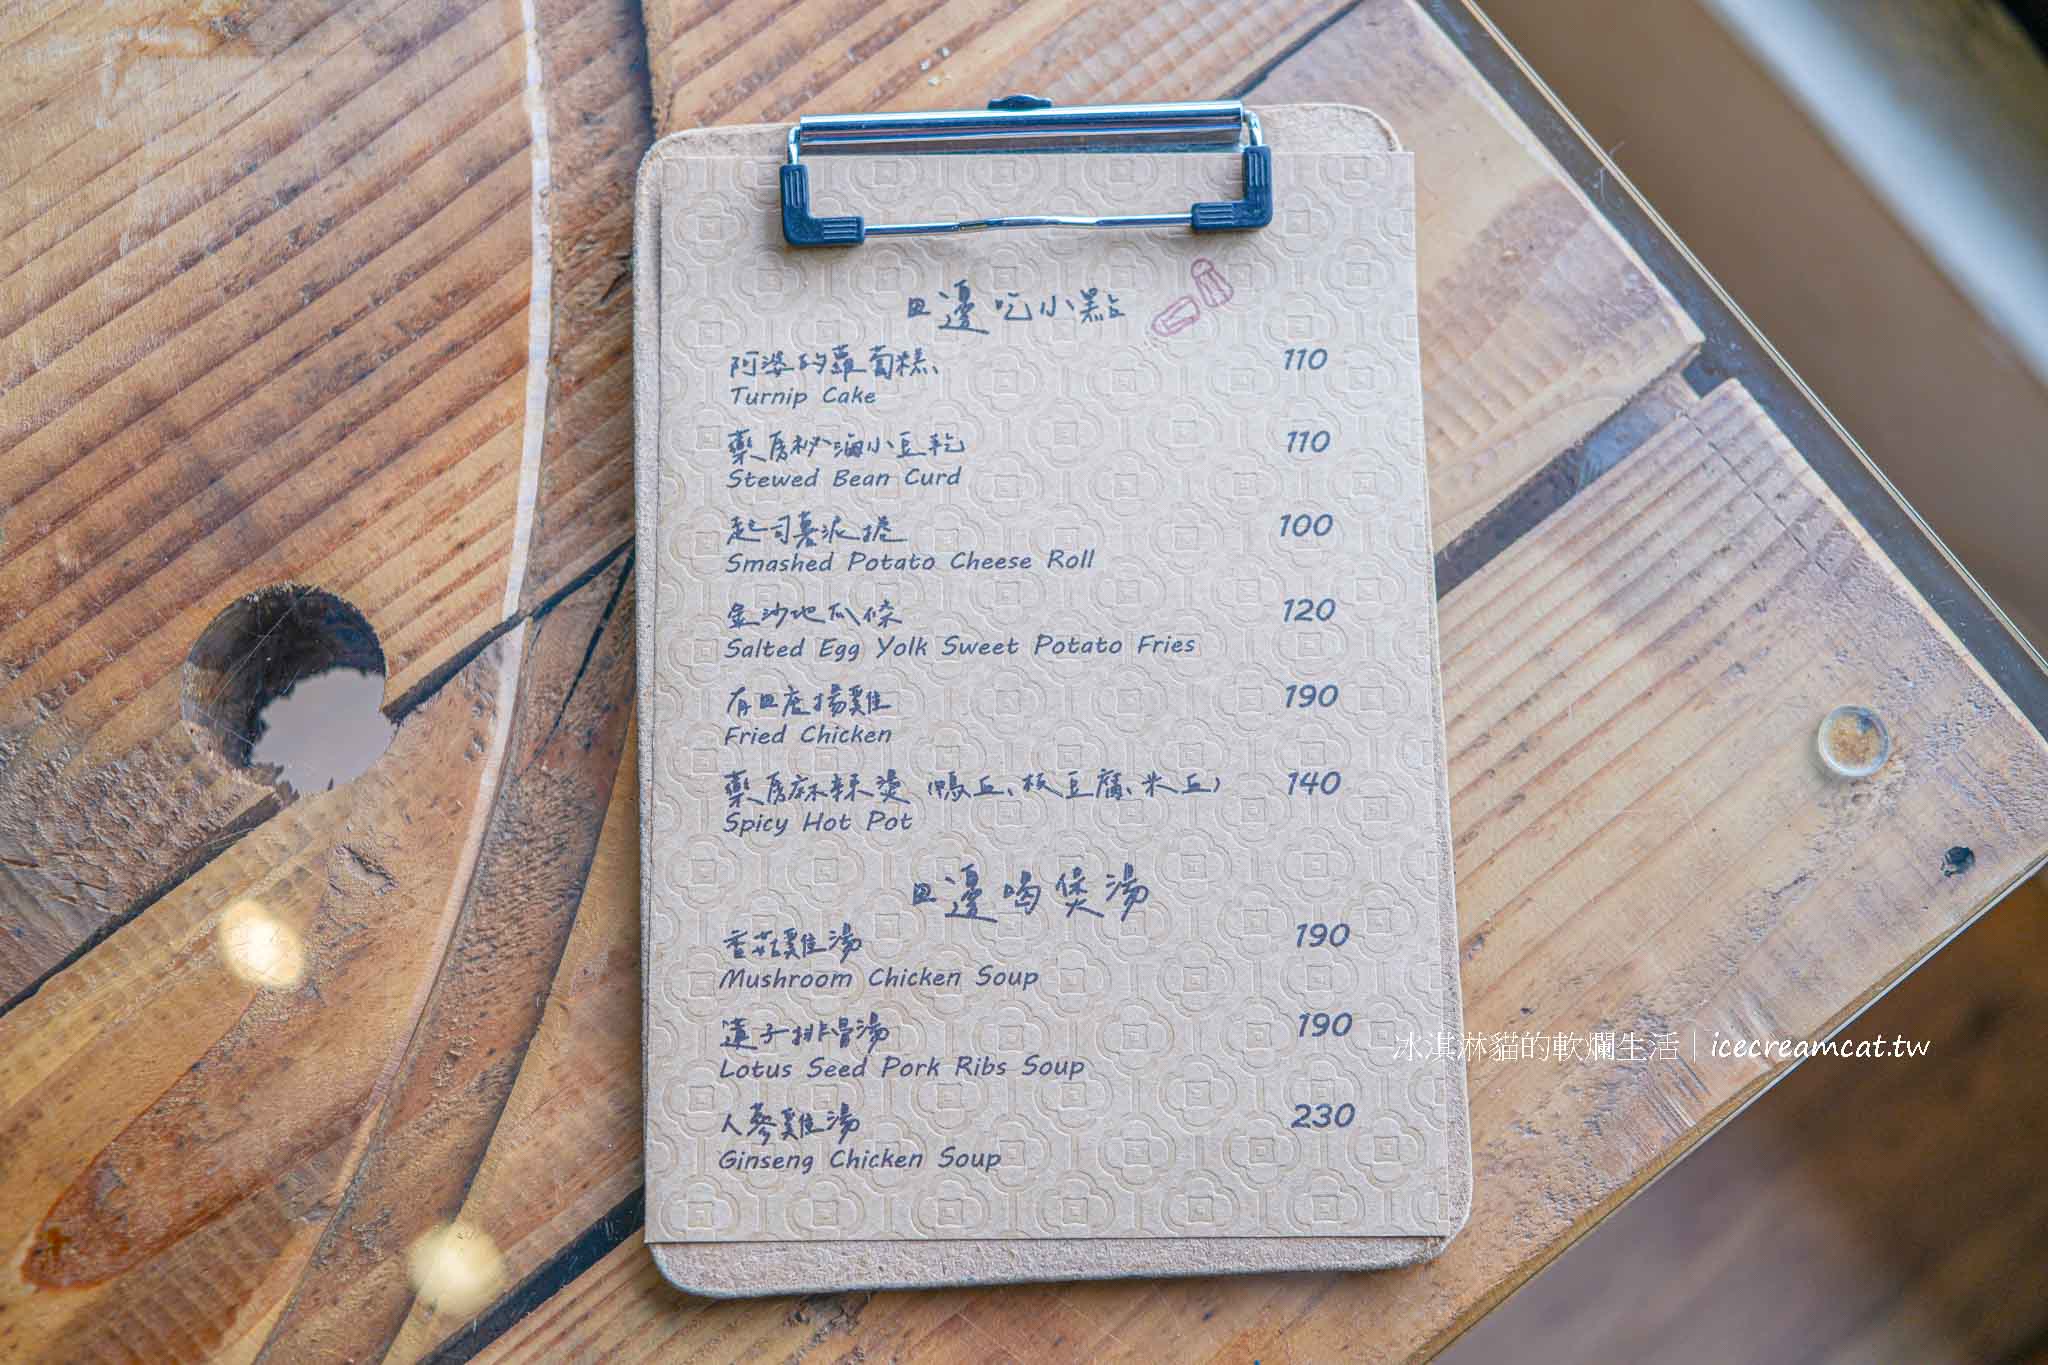 皿邊吃小點
阿婆的蘿蔔糕 110
Turnip Cake
藥房祕滷小豆乾 110
Stewed Bean Curd
起司薯泥捲 100
Smashed Potato Cheese Roll
金沙地瓜條 120
Salted Egg Yolk Sweet Potato Fries
有皿店揚雞 190
Fried Chicken
藥房麻辣燙(鴨血、板豆腐、米血) 140
Spicy Hot Pot
皿邊喝煲湯
香菇雞湯 190
Mushroom Chicken Soup
蓮子排骨湯 190
Lotus Seed Pork Ribs Soup
人蔘雞湯 230
Ginseng Chicken Soup
冰淇淋貓的軟爛生活|icecreamcat.tw